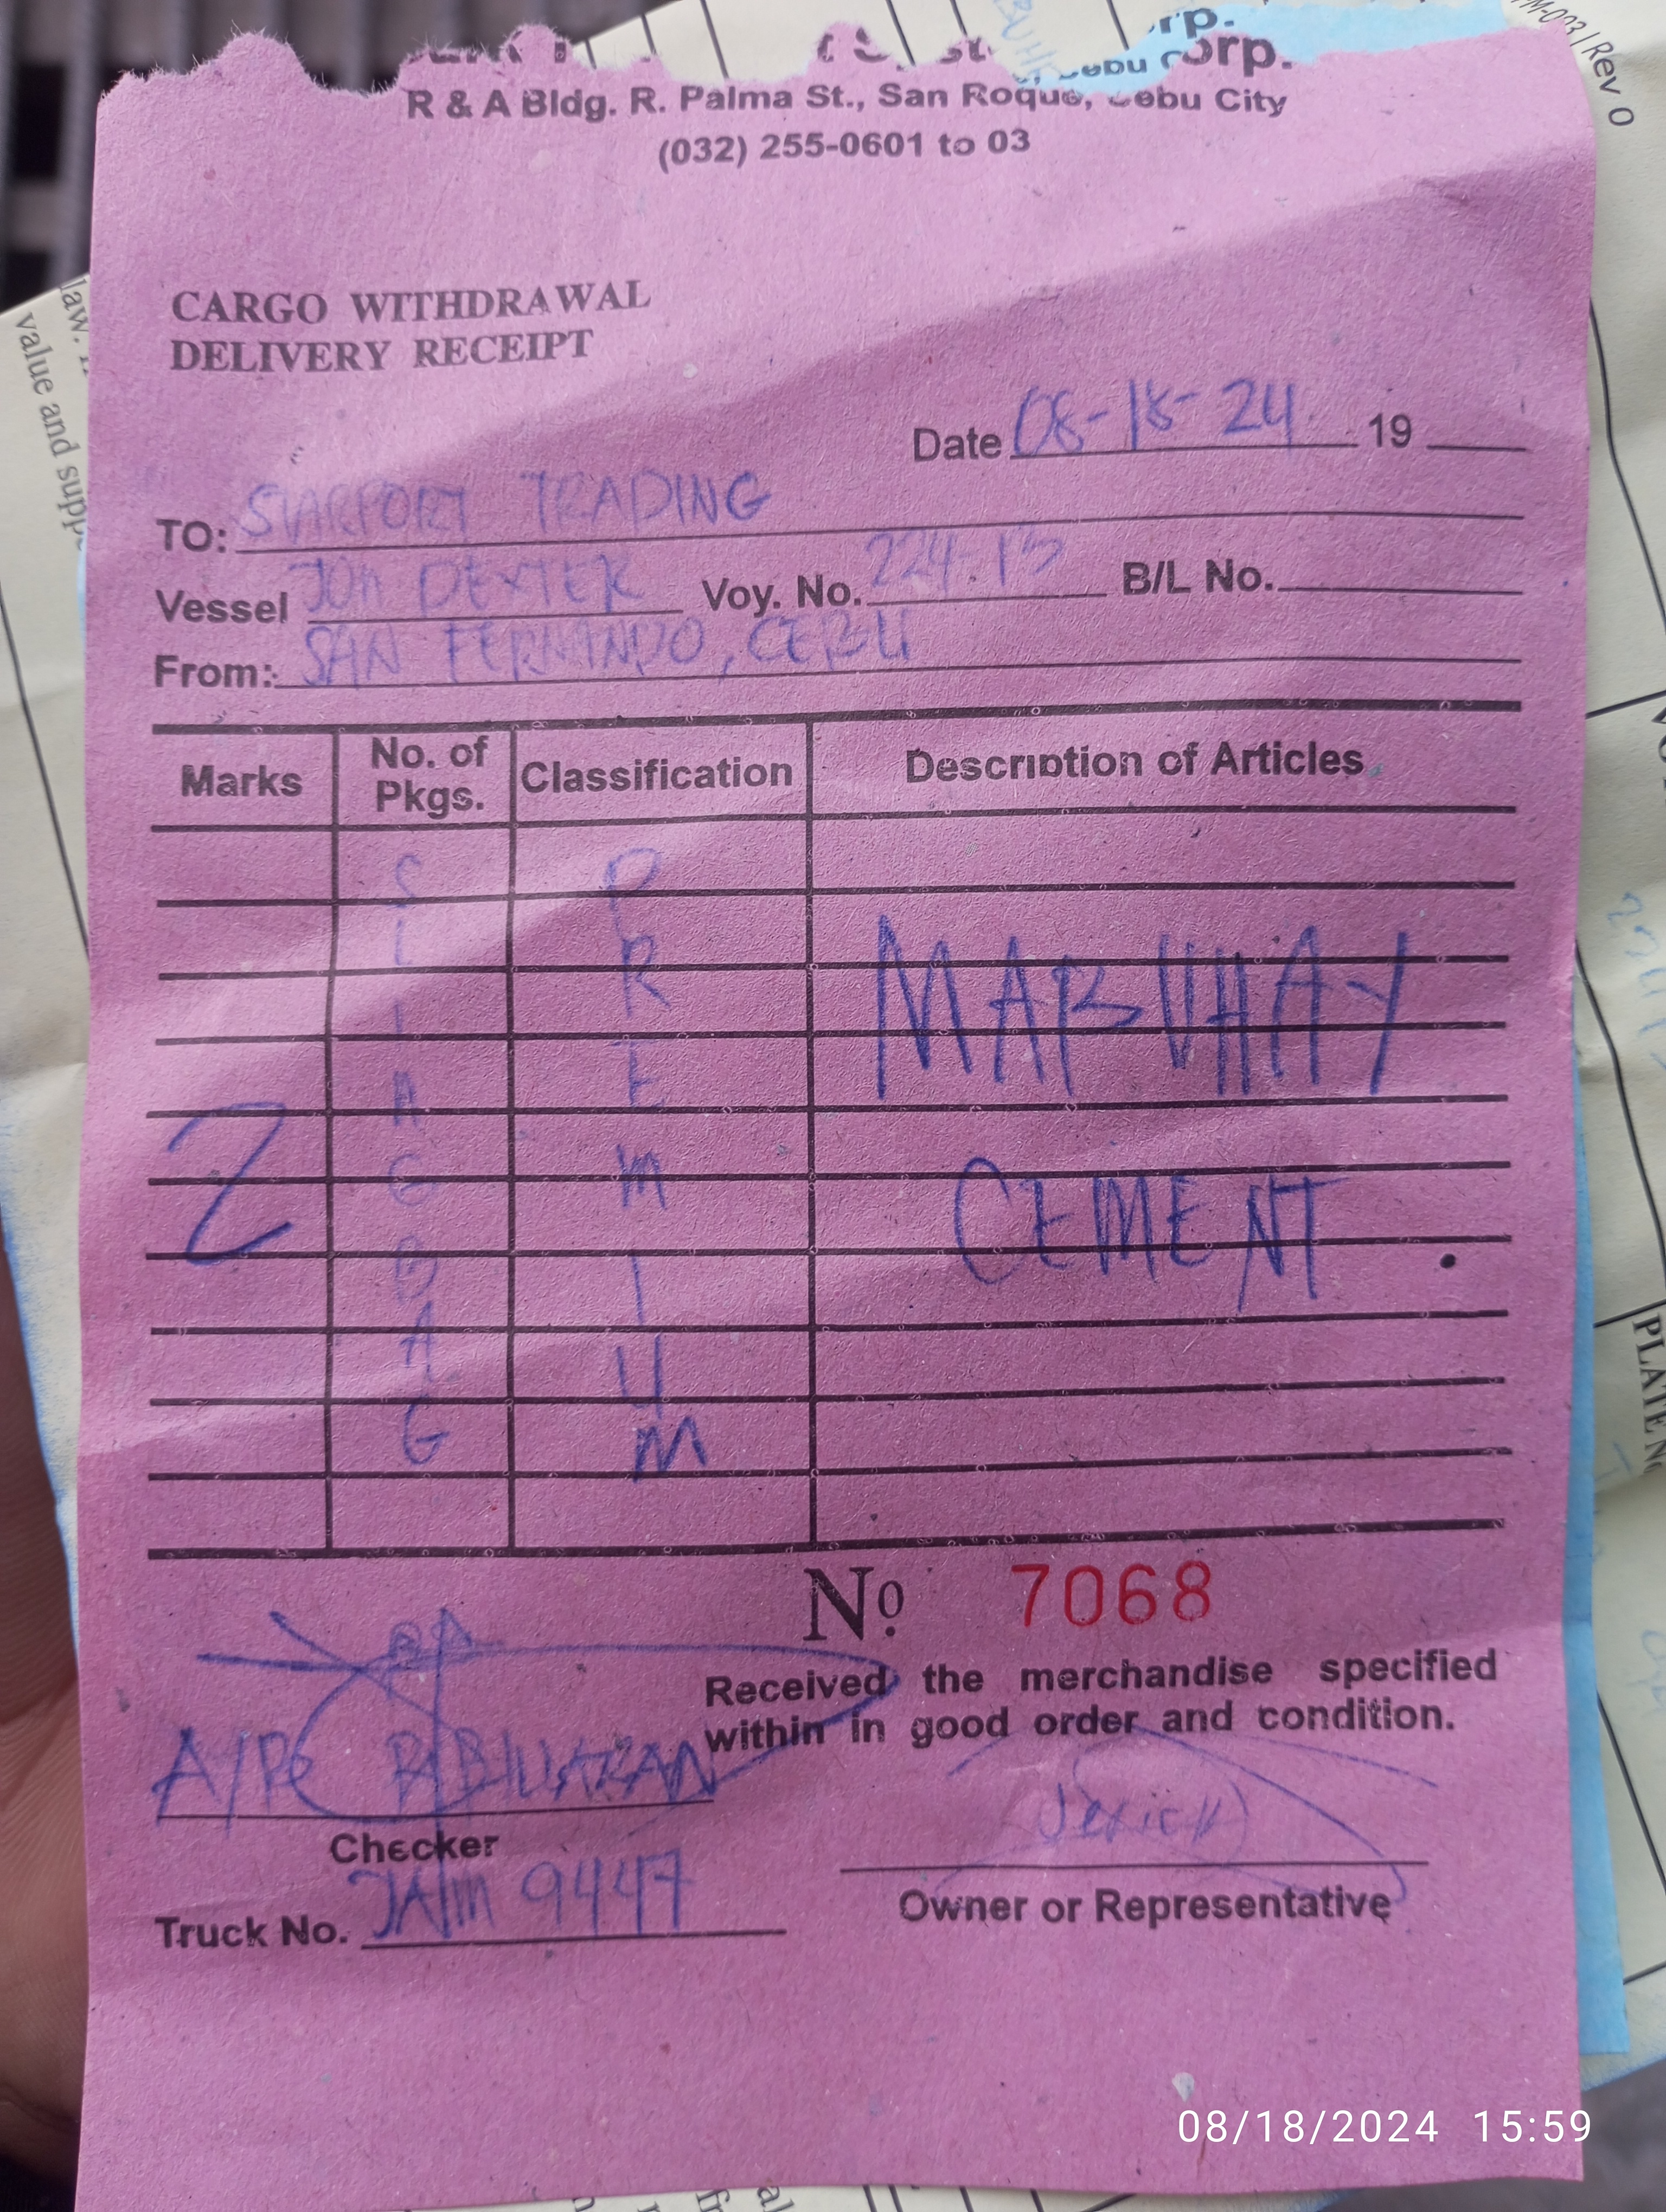 orp.
Corp.
R & A Bldg. R. Palma St., San Roque, Cebu City
(032) 255-0601 to 03
M-023 | Rev 0
law.
value and supp
CARGO WITHDRAWAL
DELIVERY RECEIPT
Date 08-18-24 19
TO: STARPORT TRADING
Vessel JON DEXTER Voy. No. 224-13 B/L No.
From: SAN FERNANDO, CEBU
Marks No. of Pkgs. Classification Description of Articles
2 PREMIUM MABUHAY
CEMENT
BAG
No 7068
Received the merchandise specified
within in good order and condition.
A/PC
Checker
(Jerick)
Owner or Representative
Truck No. 9447
PLATE N
08/18/2024 15:59